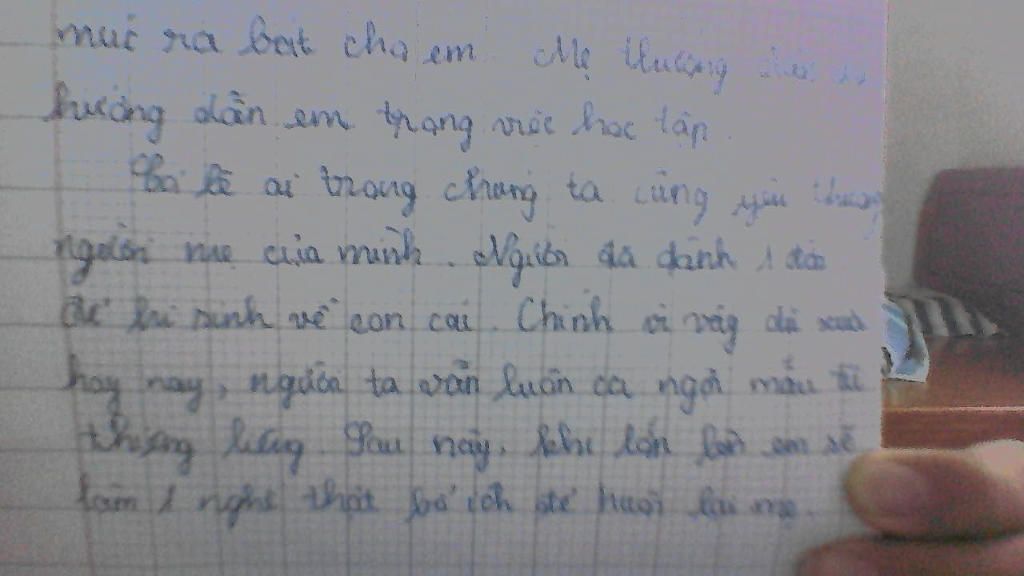 mực ra bát cho em. Mẹ thường
hướng dẫn em trong việc học tập.
Có lẽ ai trong chúng ta cũng yêu thương
người mẹ của mình. Người đã dành 1 đời
để hi sinh về con cái. Chính vì vậy dù xưa
hay nay, người ta vẫn luôn ca ngợi mẫu tử
thiêng liêng. Sau này, khi lớn lên em sẽ
làm 1 nghề thật bổ ích để nuôi lại mẹ.